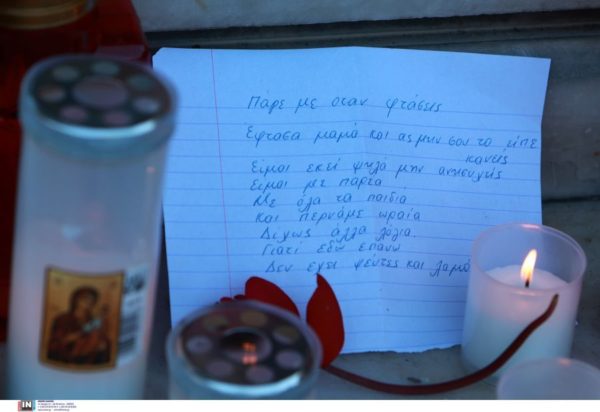 Πάρε με οταν φτάσεις
Εφτασα μαμά και ας μην σου το είπε
κανείς
Είμαι εκεί ψηλά μην ανησυχείς
Είμαι με παρέα
Με όλα τα παιδιά
και περνάμε ωραία
Διχως άλλα λόγια.
Γιατί εδώ επάνω
Δεν εχει ψέυτες και λαμό
IN